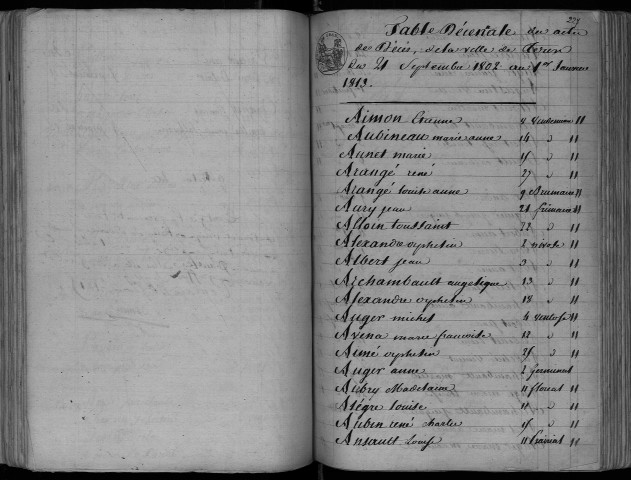 279
Table Décennale des actes
de Décès, de la ville de
du 21 Septembre 1802 au 1er Janvier
1813.
Aimon Etienne 9 Vendemiaire 11
Aubineau marie anne 14 " 11
Aunet marie 15 " 11
Arangé rené 27 " 11
Arangé louise anne 9 Brumaire 11
Aury jean 21 frimaire 11
Alloin toussaint 22 " 11
Alexandre orphelin 2 nivose 11
Albert jean 3 " 11
Archambault angelique 13 " 11
Alexandre orphelin 18 " 11
Auger michel 4 ventose 11
Avena marie francoise 12 " 11
Aimé orphelin 25 " 11
Auger anne 2 germinal 11
Aubry Madelaine 11 floreal 11
Alégre louise 11 " 11
Aubin rené charles 15 " 11
Ansault Louise 11 prairial 11